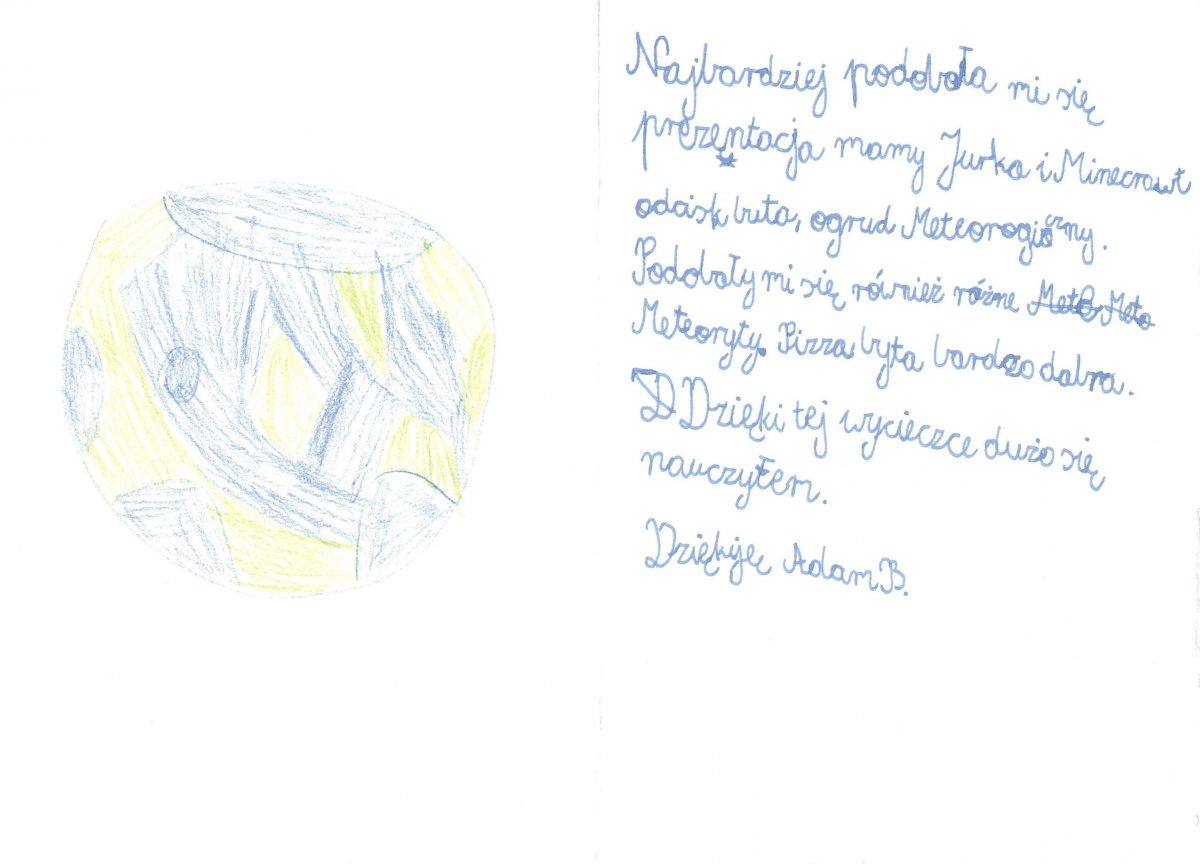 Najbardziej podobała mi się
prezentacja mamy Jurka i Minecrawt
odcisk buta, ogrud Meteorogiczny.
Podobały mi się również różne
Meteoryty. Pizza była bardzo dobra.
Dzięki tej wycieczce dużo się
nauczyłem.
Dziękuję Adam B.